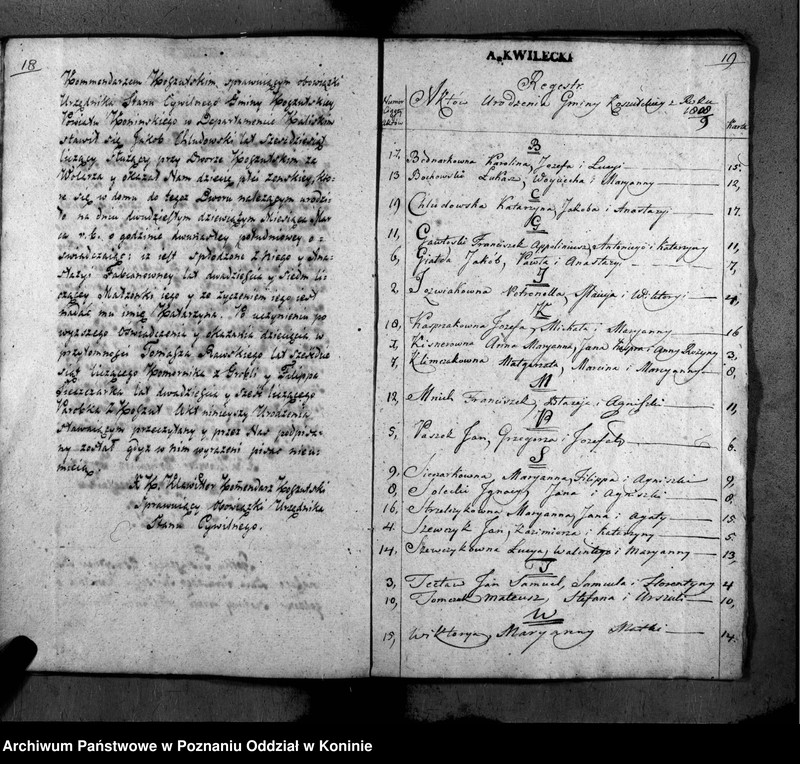 18
Kommendarzem Koszutskim sprawuiącym obowiązki
Urzędnika Stanu Cywilnego Gminy Koszutskiey
Powiatu Konińskiego w Departamencie Kaliskim
stawił się Jakob Chludowski lat Sześćdziesiąt
liczący służący przy Dworze Koszutskim za
Wolarza y okazał Nam dziecię płci żenskiey, któ-
re się w domu do tegoż Dworu należącym urodzi-
ło na dniu dwudziestym dziewiątym Miesiąca Mar
ca r. b. o godzinie dwunastey południowey o-
swiadczaiąc: iż iest spłodzone z niego y Ana-
stazyi Fabianowney lat dwadzieścia y siedm li-
czącey Małżonki iego y że życzeniem iego iest
nadać mu imię Katarzyna. Po uczynieniu po
wyższego oświadczenia y okazania dziecięcia w
przytomności Tomasza Rawskiego lat sześćdzie
siąt liczącego Komornika z Grobli y Filippa
lat dwadzieścia y sześć liczącego
Parobka z Koszut Akt ninieyszy Urodzenia
stawaiącym przeczytany y przez Nas podpisa-
ny został gdyż w nim wyrażeni pisać nieu-
mieią.
X. Komendarz Koszutski
Sprawuiący Obowiązki Urzędnika
Stanu Cywilnego.
A. KWILECKI
19
Regestr
Aktów Urodzenia Gminy Koszutskiey z Roku
1808/9
Numer
aktów
Karta
B
17. Bednarkowna Karolina, Jozefa i Lucyi 15.
13 Bochowski Łukasz, Woyciecha i Maryanny 12,
C
19 Chludowska Katarzyna, Jakoba i Anastazyi 17.
G
11, Gawłoski Franciszek Appoliniusz, Antoniego i Katarzyny 11,
6, Giałda Jakób, Pawła i Anastazyi 7,
J
2. Jozwiakowna Petronella, Macieja i Wiktoryi 4,
K
18, Kasprzakowna Jozefa, Michała i Maryanny 16
1, Kisnerowna Anna Maryanna, Jana Kaspra i Anny Rozyny 3,
7, Klimczakowna Małgorzata, Marcina i Maryanny 8,
M
12, Mnich Franciszek, Błażeja i Agniszki 11,
P
5, Paszek Jan, Grzegorza i Jozefaty 6.
S
9. Sierzarkowna Maryanna, Filippa i Agniszki 9,
8, Solecki Jgnacy, Jana i Agniszki 8,
16, Strzelczykowna Maryanna, Jana i Agaty 15.
4. Szewczyk Jan, Kazimierza i Katarzyny 5
14, Szewczykowna Lucya, Walintego i Maryanny 13,
T
3, Jan Samuel, Samuela i Florentyny 4
10, Tomczak Mateusz, Stefana i Urszuli 10,
W
15, Wiktorya, Maryanny Matki 14.
Archiwum Państwowe w Poznaniu Oddział w Koninie